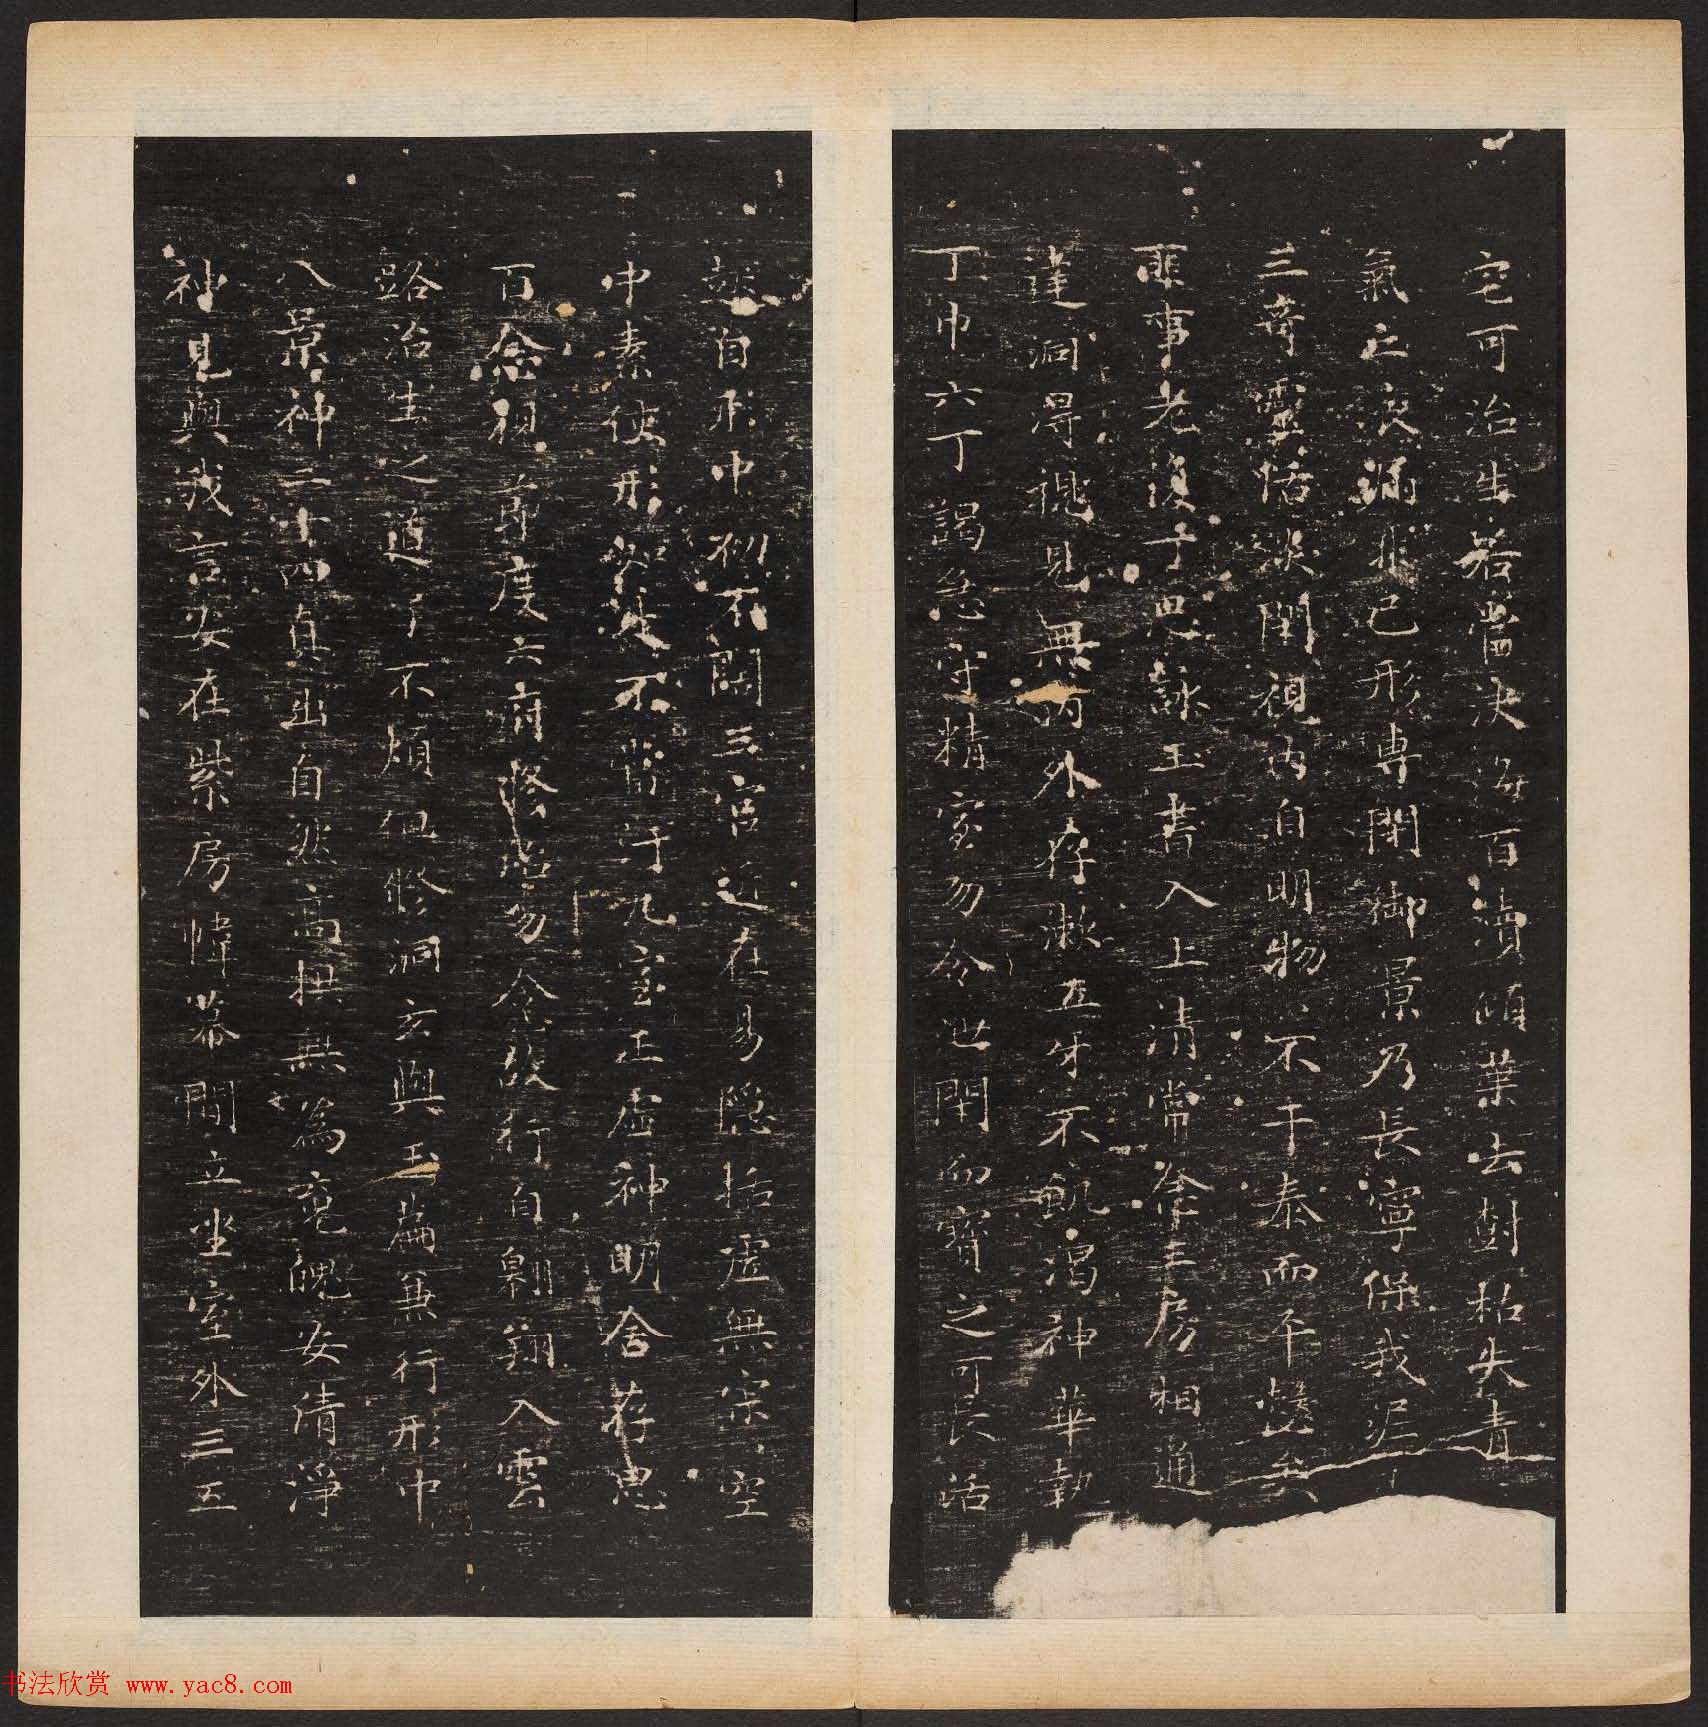 宅可治生若當決海百瀆傾葉去樹枯失青
氣亡液漏非己形專閉御景乃長寧保我泥
三奇靈恬淡閑視內自明物、不干泰而平愨矣
匪事老復子思詠玉書入上清常念三房相通
達洞得視見無內外存漱五牙不飢渴神華執
丁巾六丁謁急守精室勿令泄閉而寶之可長活
起自形中初不闊三宮近在易隱括虛無寂、空
中素使形如是不當汙九室正虛神明舍存思
百念視節度六府修治勿令故行自翱翔入雲
路治生之道了不煩但修洞玄與玉篇兼行形中
八景神二十四真出自然高拱無為魂魄安清淨
神見與我言安在紫房幃幕間立坐室外三五
书法欣赏 www.yac8.com